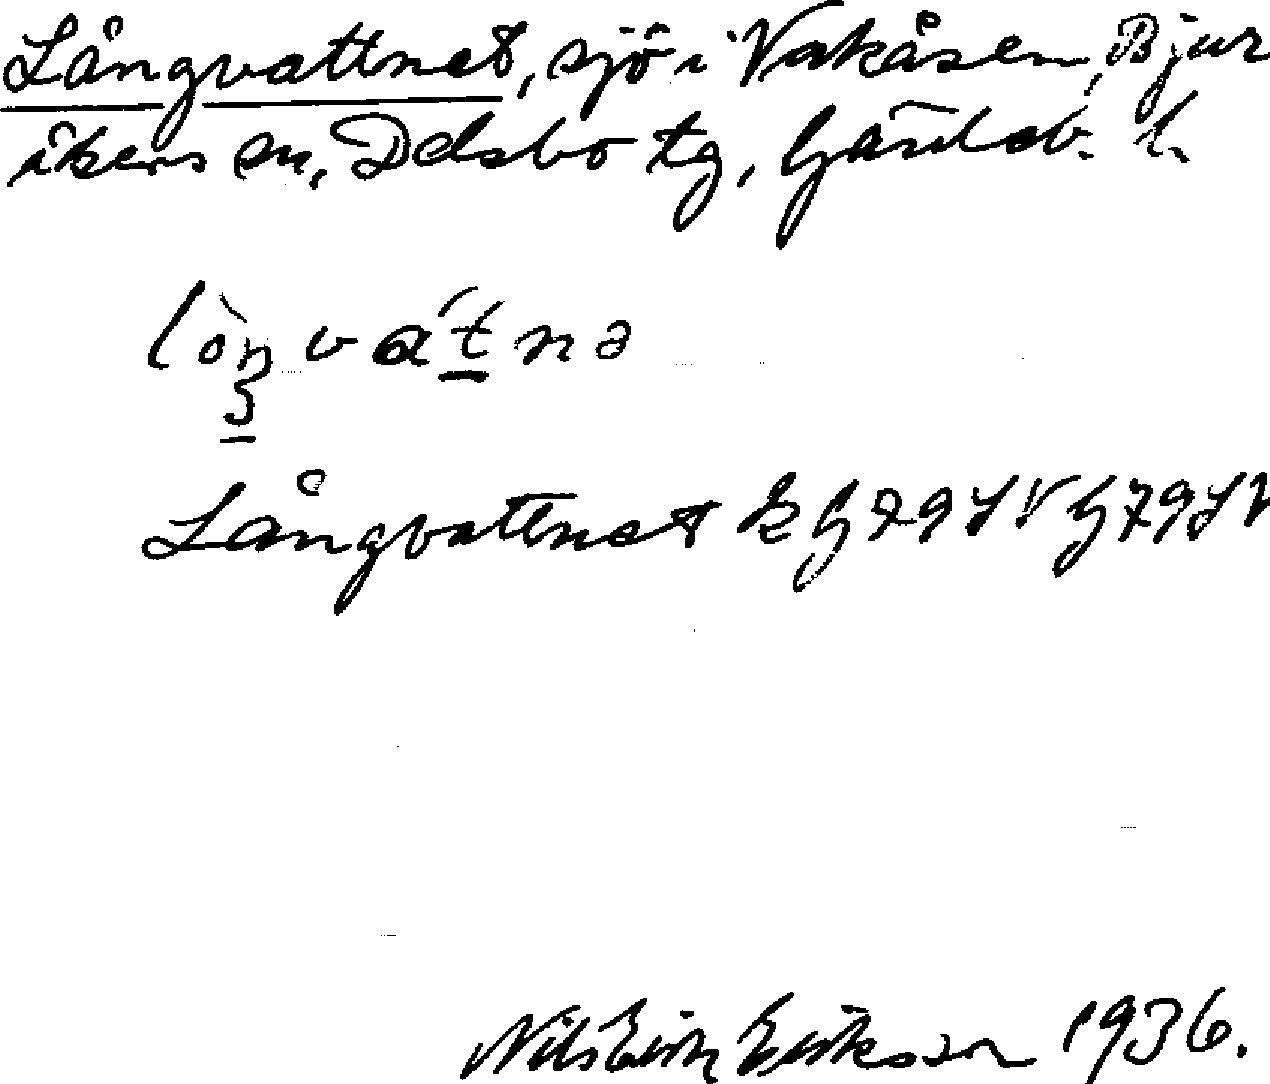 Långvattnet, sjö i Vakåsen, Bjur
åkers sn, Delsbo tg, Gävleb. l.
Långvattnet k G 79 SV G 79 SV
Nils Erik Eriksson 1936.